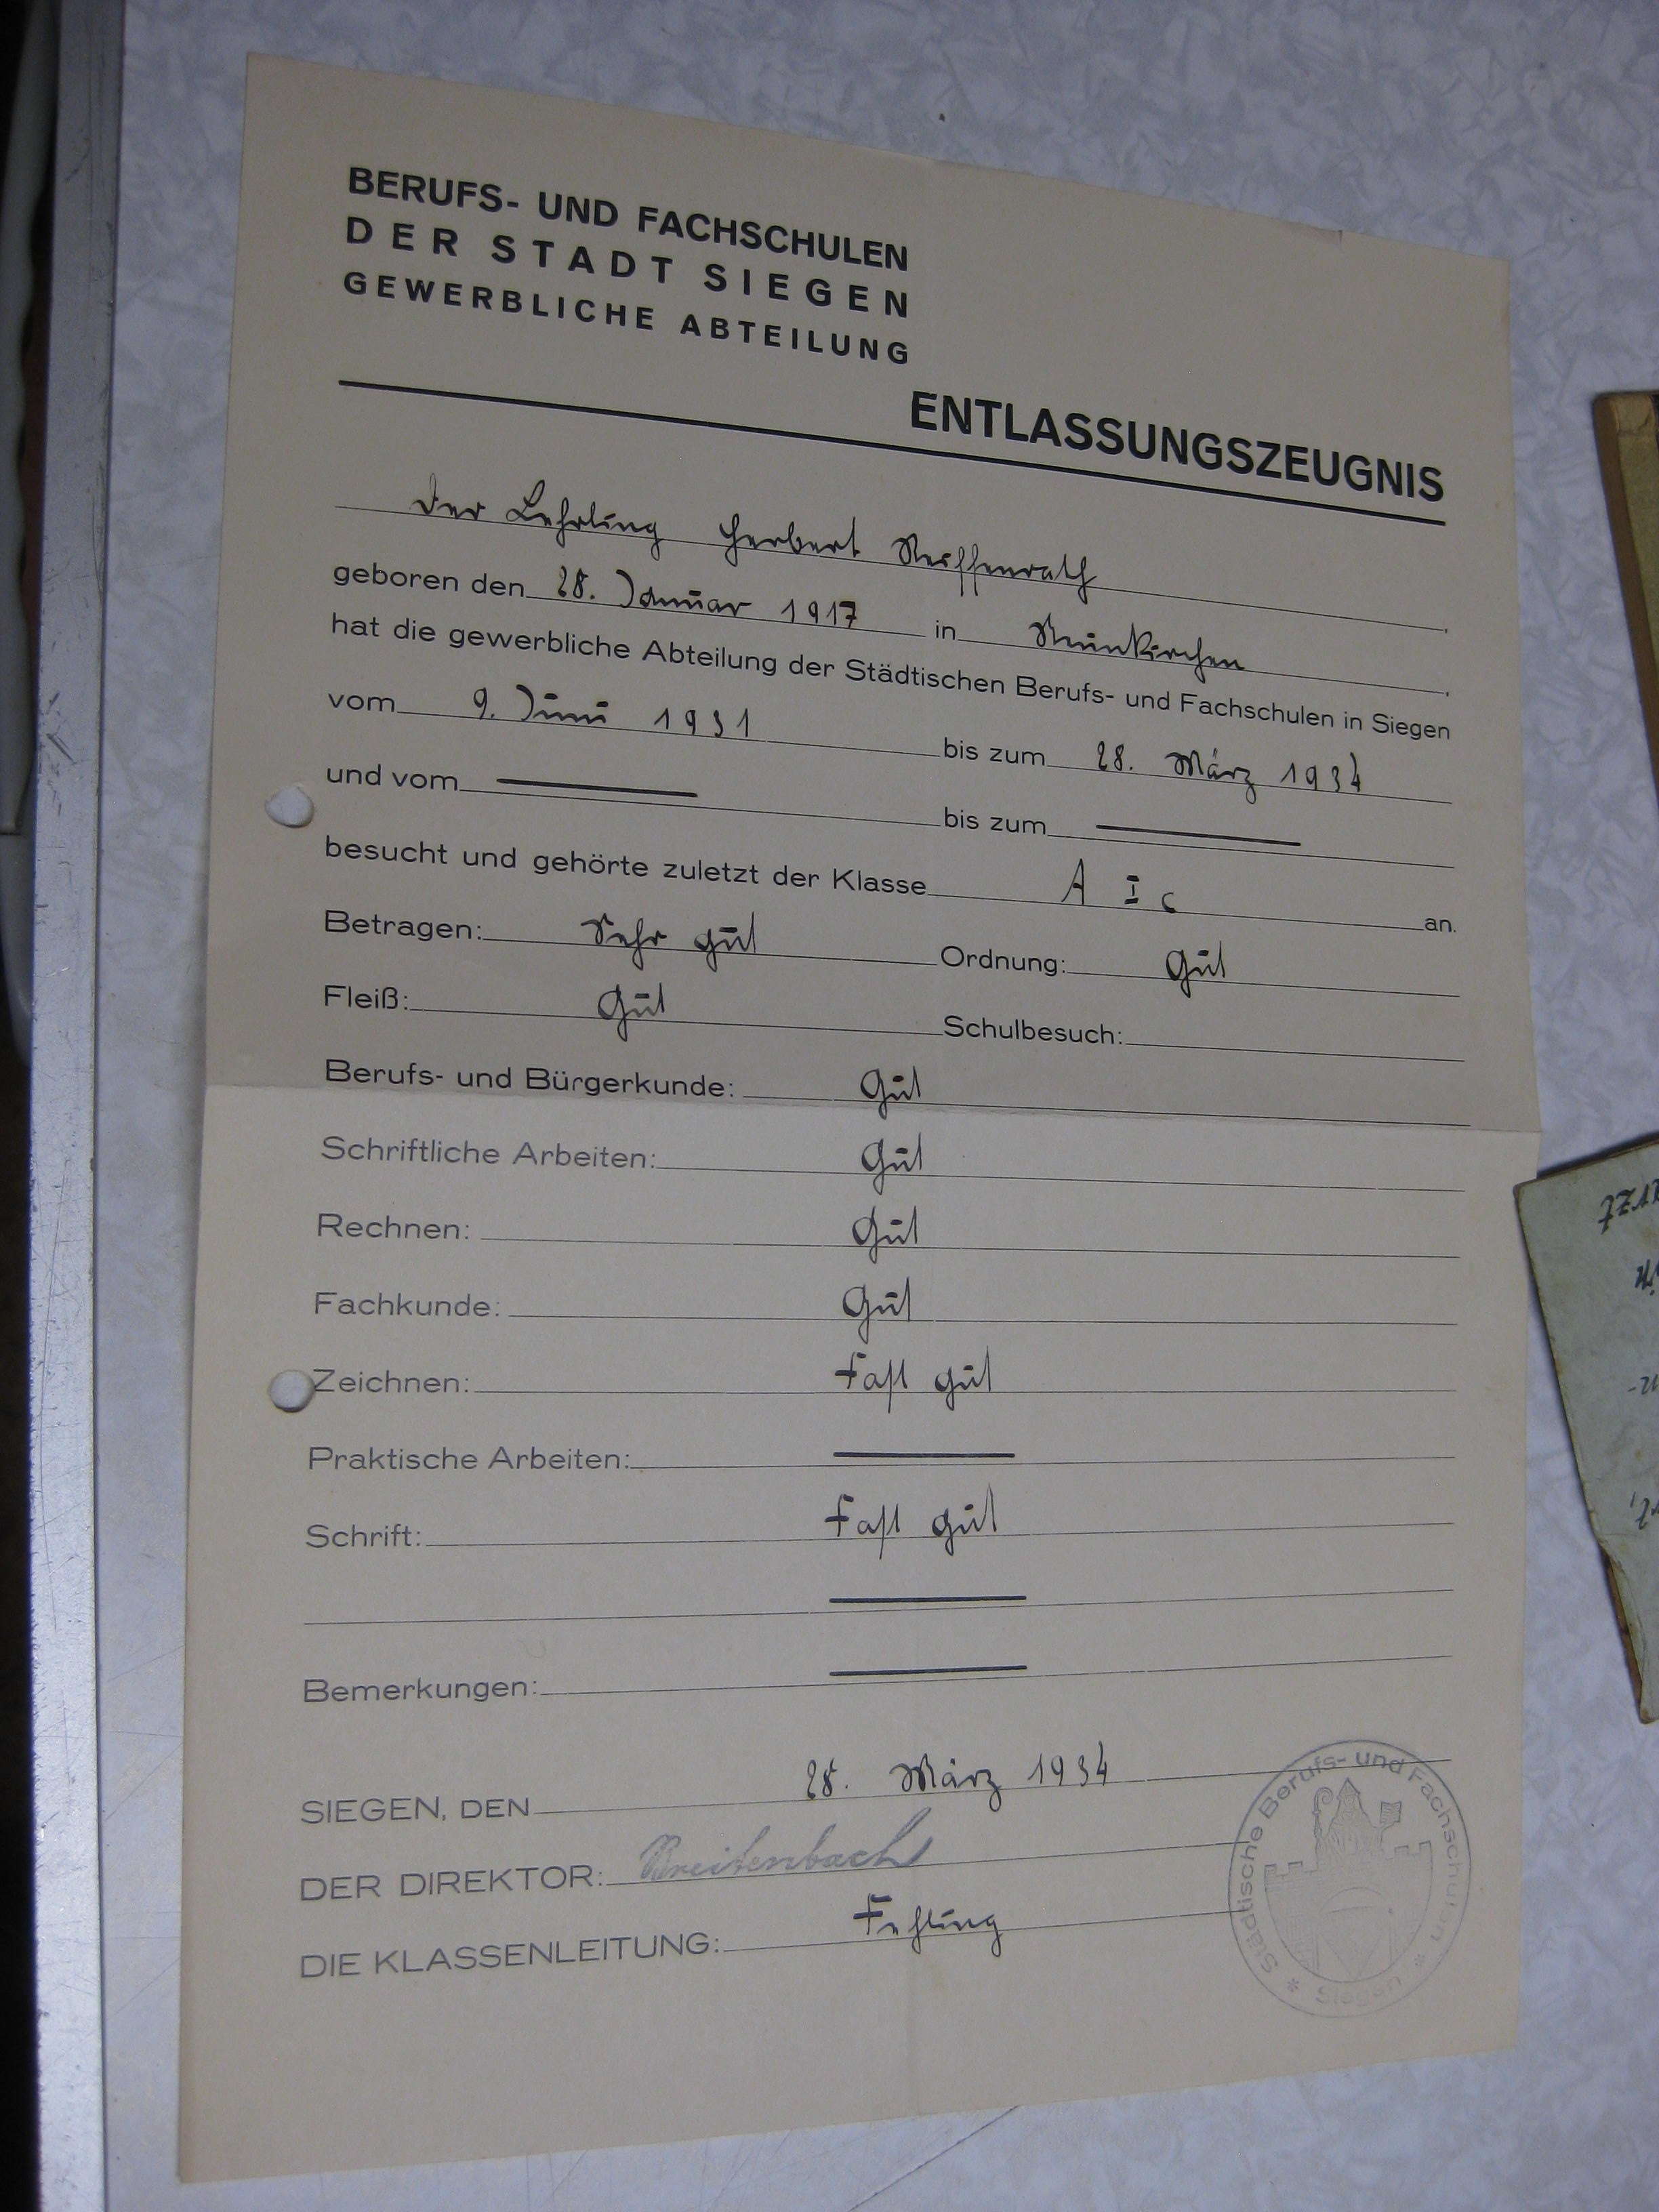 BERUFS- UND FACHSCHULEN
DER STADT SIEGEN
GEWERBLICHE ABTEILUNG
ENTLASSUNGSZEUGNIS
Der Lehrling Herbert Reiffenrath
geboren den 28. Januar 1917 in Neunkirchen
hat die gewerbliche Abteilung der Städtischen Berufs- und Fachschulen in Siegen
vom 9. Juni 1931 bis zum 28. März 1934
und vom bis zum
besucht und gehörte zuletzt der Klasse A I c an.
Betragen: Sehr gut Ordnung: Gut
Fleiß: Gut Schulbesuch:
Berufs- und Bürgerkunde: Gut
Schriftliche Arbeiten: Gut
Rechnen: Gut
Fachkunde: Gut
Zeichnen: Fast gut
Praktische Arbeiten:
Schrift: Fast gut
Bemerkungen:
SIEGEN, DEN 28. März 1934
DER DIREKTOR: Breitenbach
DIE KLASSENLEITUNG: Fehling
Städtische Berufs- und Fachschulen * Siegen *